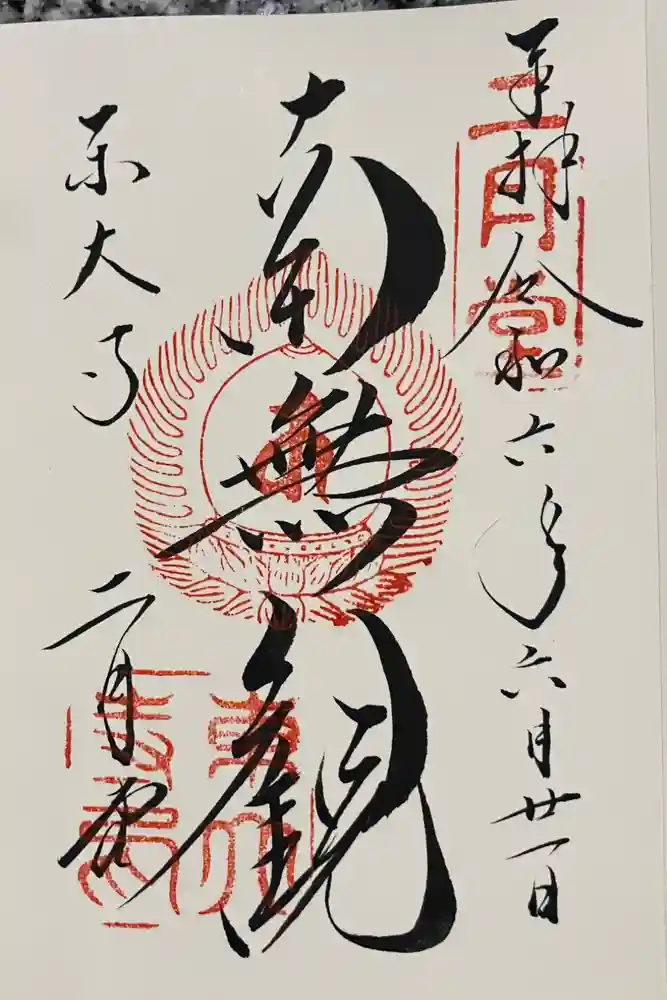 奉拝 令和六年六月廿一日
二月堂
南無観
東大寺 二月堂